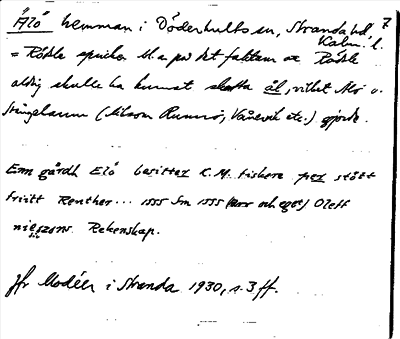 "Älö" hemman i Döderhults sn, Stranda hd, Kalm. l. 7
= Rödsle spricker bl. a. på det faktum att Rödsle
aldrig skulle ha kunnat skatta ål, vilket Älö o.
Stångehamn (liksom Runnö, Vånevik etc.) gjorde.
Enn gårdh Elö besittez K. M. fiskere pez stött
friitt Renther... 1555 Sm 1555 (Arv och eget) Oleff
nieszons Rekenskap.
Jfr Modéer i Stranda 1930, s. 3 ff.